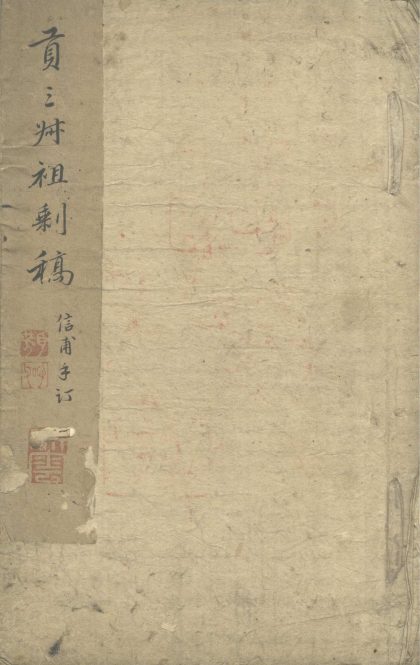 貢三叔祖剩稿
信甫手订